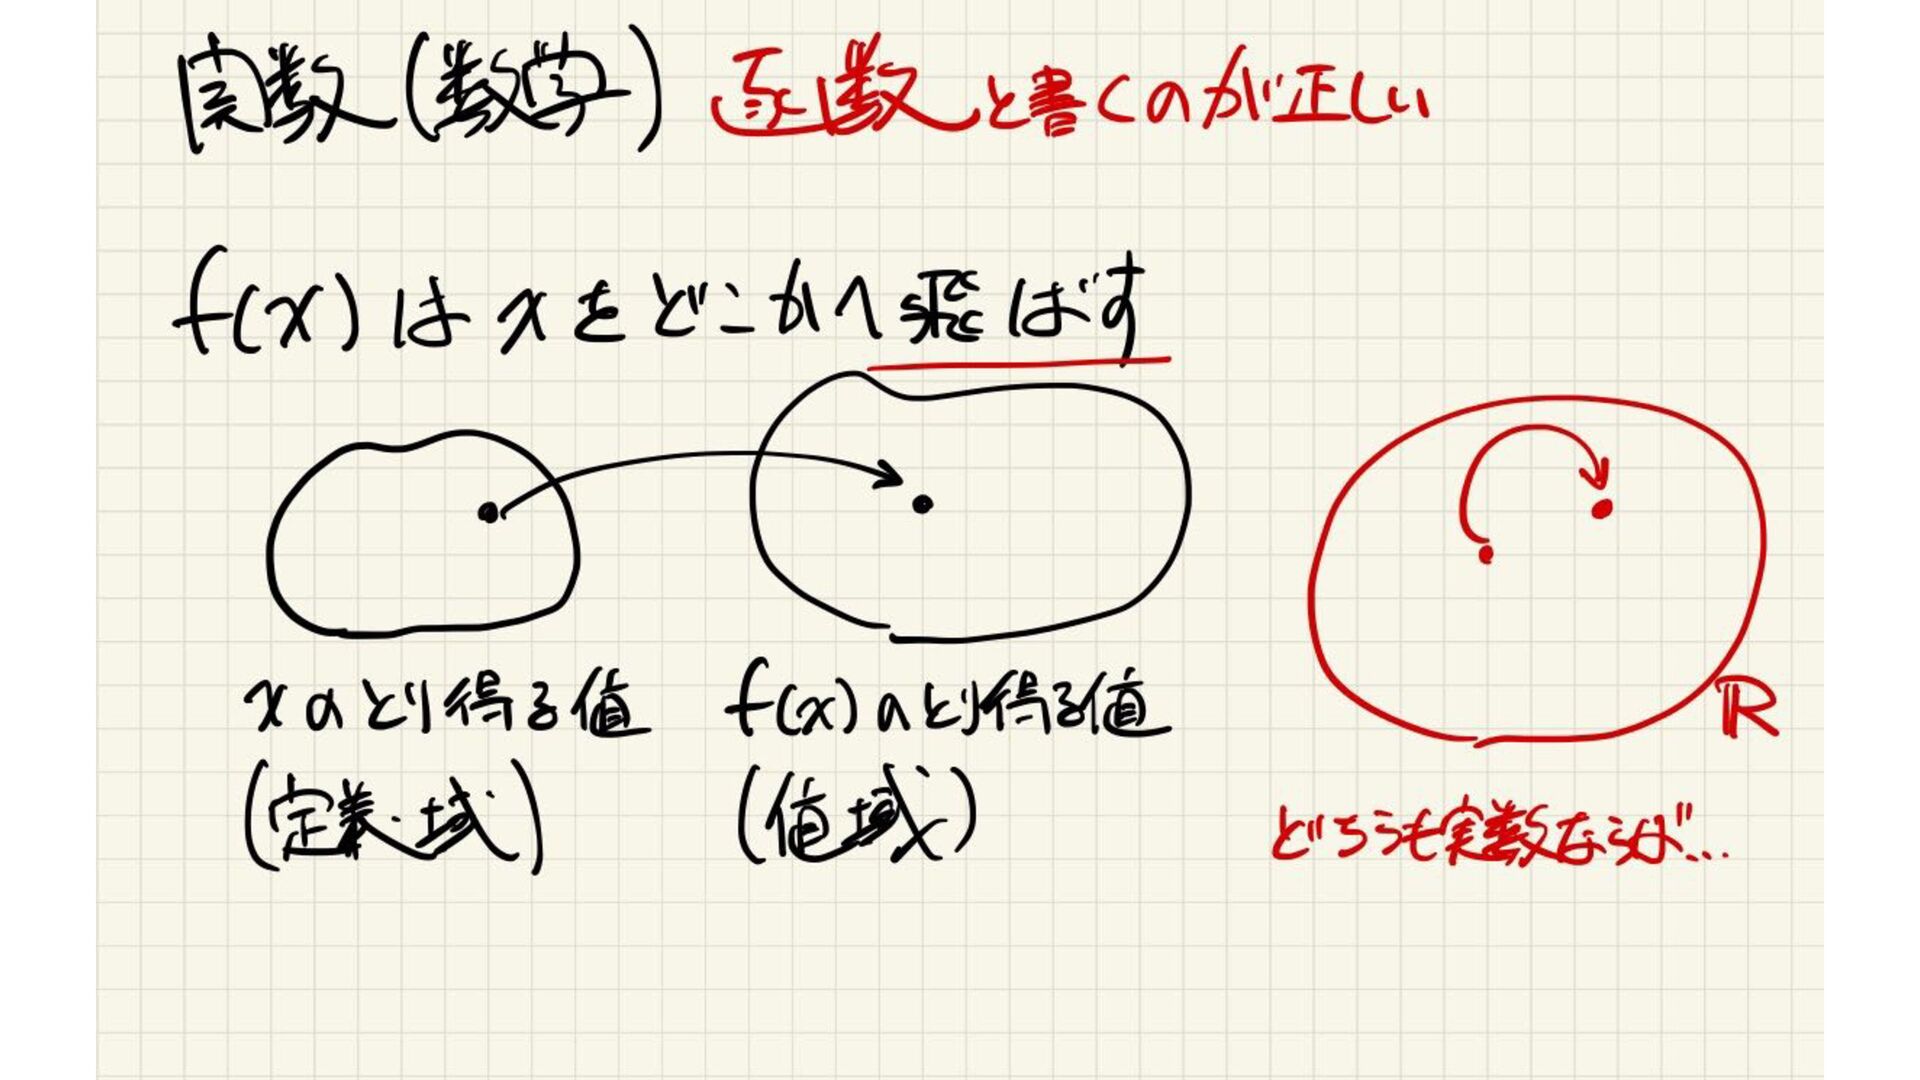 関数(数学) 函数と書くのが正しい
f(x)はxをどこかへ飛ばす
xのとり得る値
(定義域)
f(x)のとり得る値
(値域)
ℝ
どちらも実数ならば…